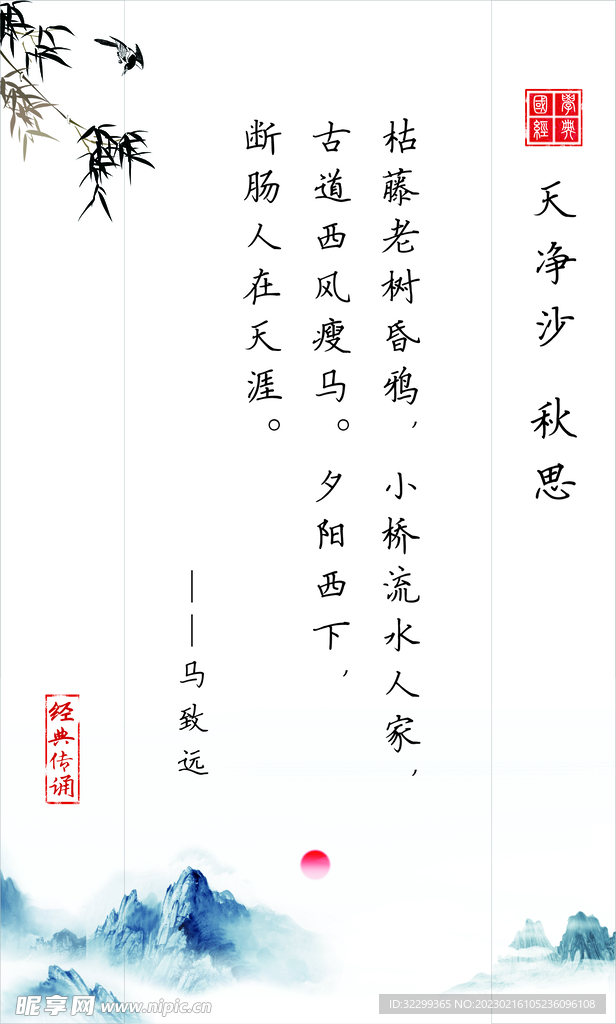 國學經典
天净沙 秋思
枯藤老树昏鸦，小桥流水人家，
古道西风瘦马。夕阳西下，
断肠人在天涯。
——马致远
经典传诵
昵享网 www.nipic.cn
ID:32299365 NO:20230216105236096108